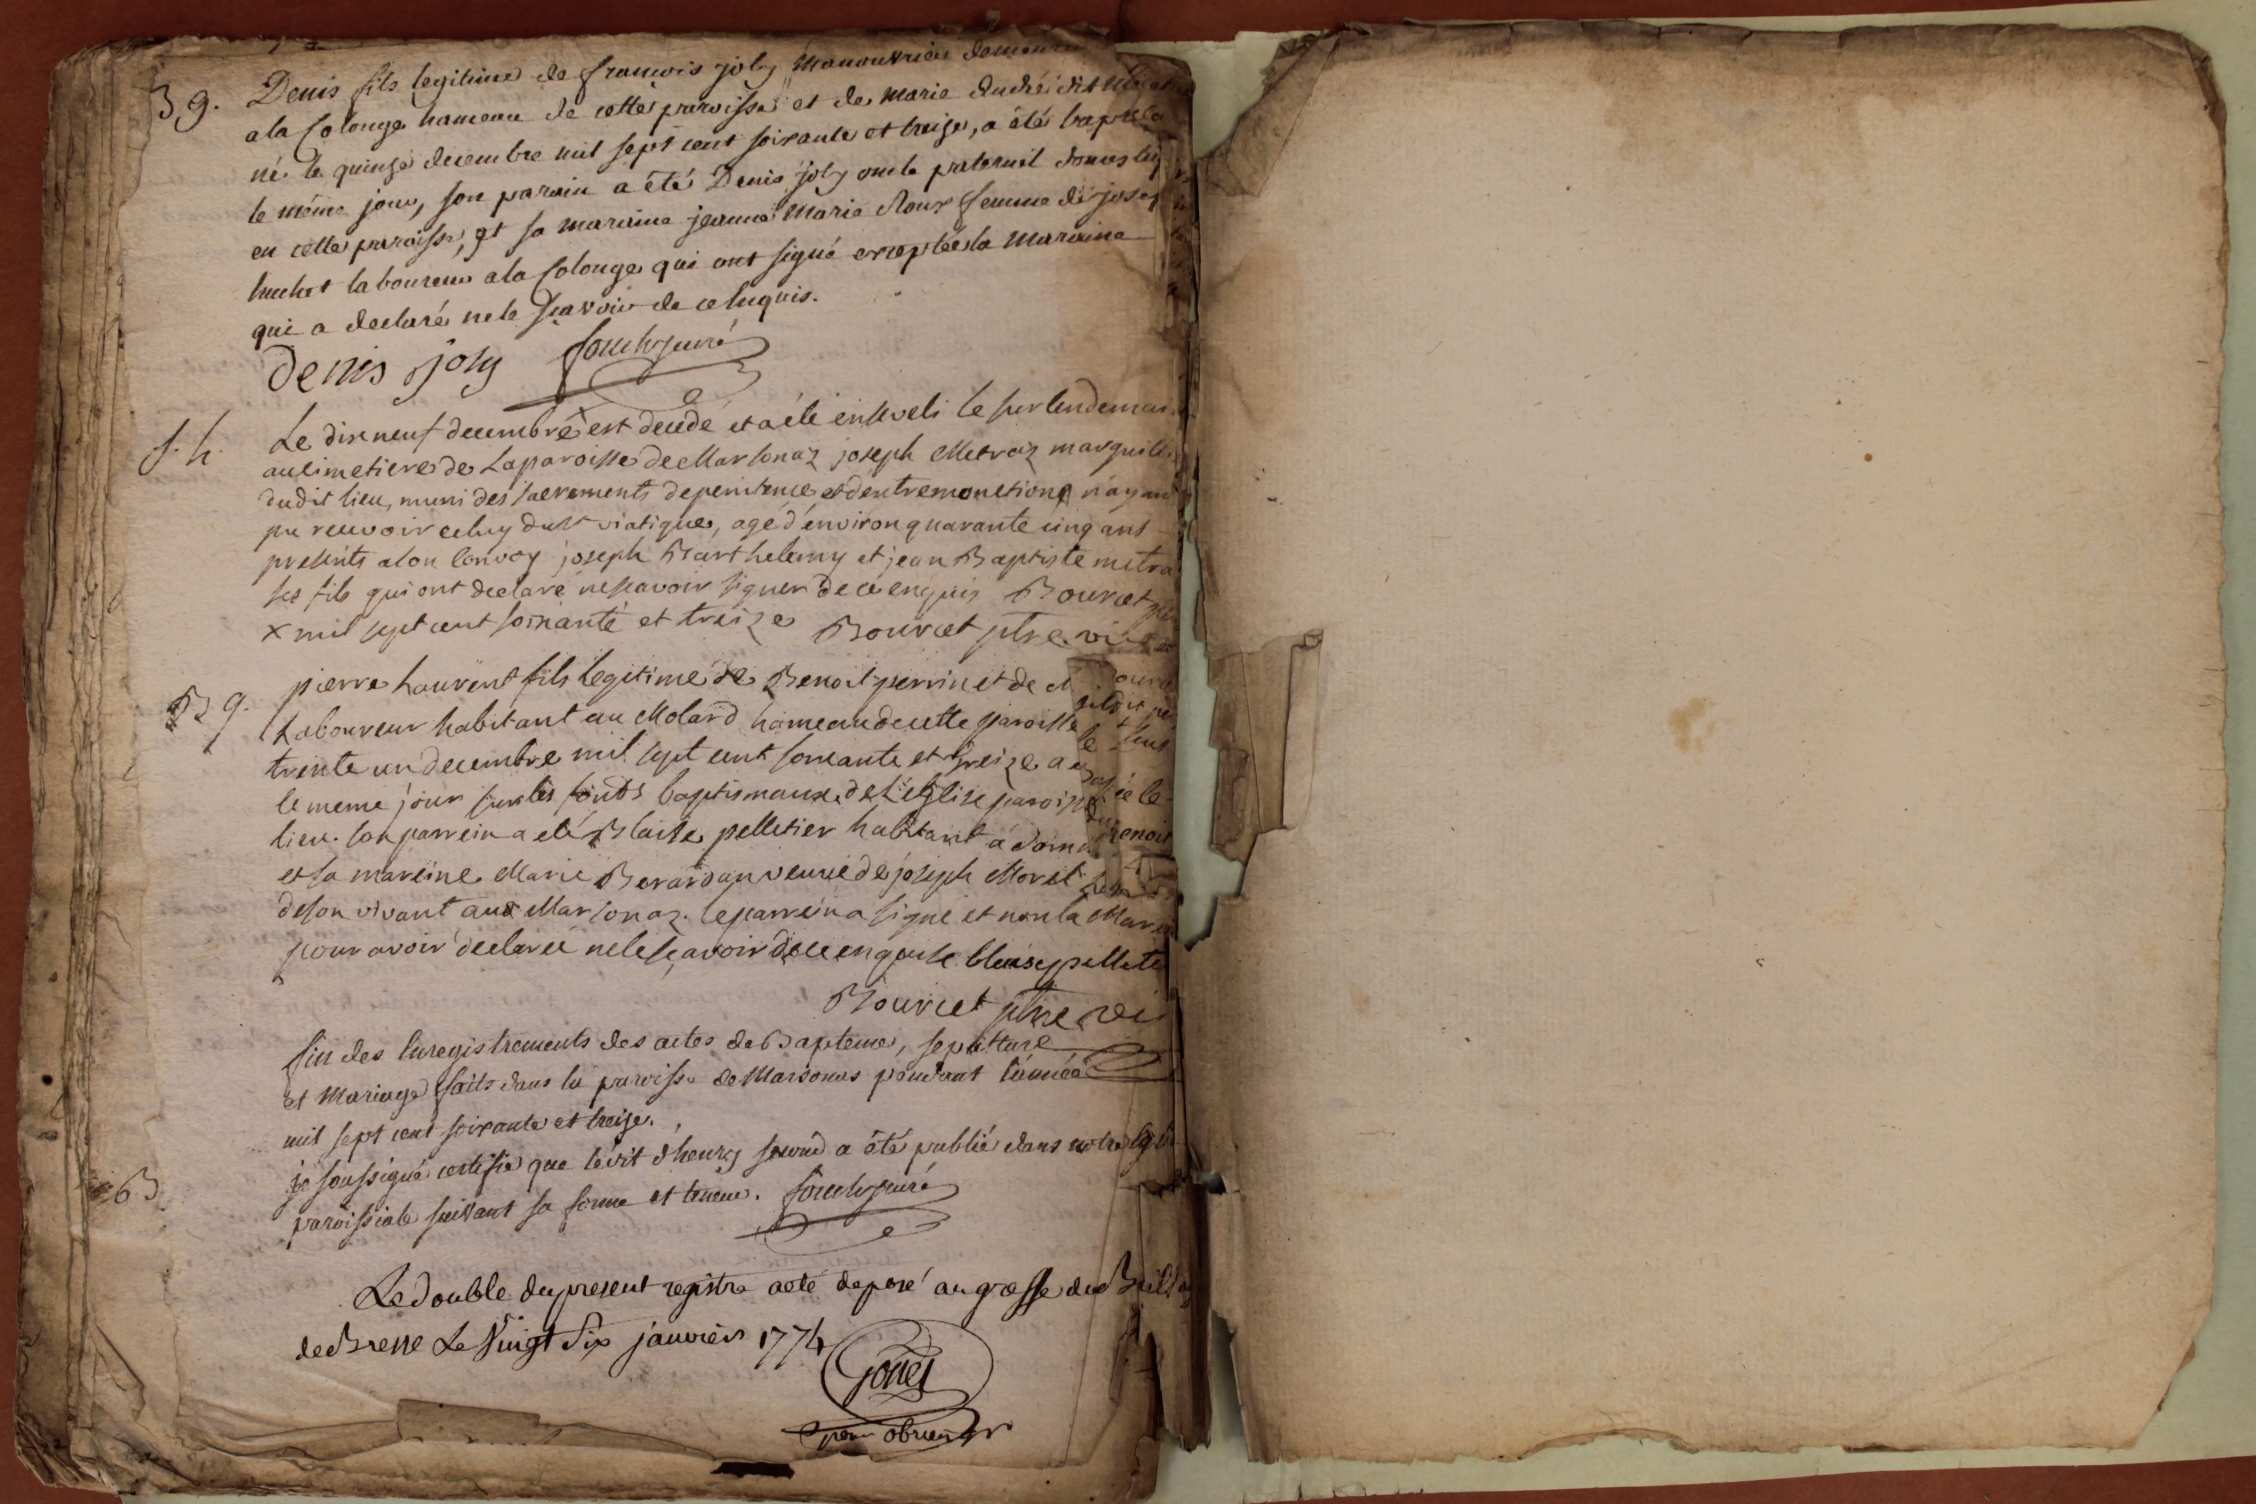 B g. Denis fils legitime de francois joly manouvrier
a la Colonge hameau de cette paroisse et de marie
né le quinze decembre mil sept cent soixante et treize, a été baptisé
le même jour, son parain a été Denis joly oncle paternel
en cette paroisse, et sa maraine jeanne Marie Roux femme de
buchet laboureur a la Colonge qui ont signé exceptée la Maraine
qui a declaré ne le scavoir de ce enquis.
denis joly
S. h. Le dix neuf decembre × est decedé et a été enseveli le surlendemain
au cimetiere de La paroisse de Marsonaz joseph Metraz
dudit lieu, muni des sacrements de penitence et d'extreme onction n'ayant
pu recevoir celuy du st viatique, agé d'environ quarante cinq ans
presents a son convoy joseph Barthelemy et jean Baptiste
ses fils qui ont declaré ne scavoir signer de ce enquis Bourcet
× mil sept cent soixante et treize Bourcet ptre
B g. pierre Laurent fils legitime de Benoit perrin et de
Laboureur habitant au Molard hameau de cette paroisse
trente un decembre mil sept cent soixante et treize a
le meme jour sur les fonds baptismaux de L'eglise
lieu. son parrein a été Blaise pelletier habitant à
et sa mareine Marie Berardan veuve de joseph Morel
de son vivant aux Marsonaz. le parrein a signé et non la
pour avoir declaree ne le sçavoir de ce enquise blaise
Bourcet ptre
fin des Enregistrements des actes de Bapteme, sepulture
et Mariage faits dans la paroisse de Marsonas pendant l'année
mil sept cent soixante et treize.
je soussigné certifie que l'édit d'henry second a été publié dans notre
paroissiale suivant sa forme et teneur.
Le double du present registre a eté deposé au greffe du
de Bresse Le Vingt Six janvier 1774